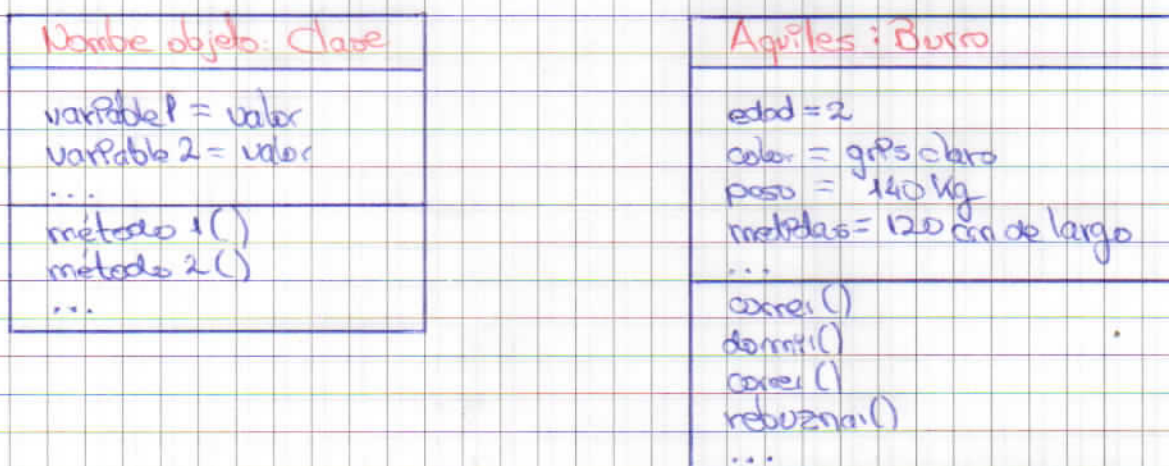 Nombe objeto: Clase
variable 1 = valor
variable 2 = valor
...
método 1()
método 2()
...
Aquiles: Burro
edad = 2
color = gris claro
peso = 140 Kg
medidas = 120 cm de largo
...
correr()
dormir()
correr()
rebuznar()
...